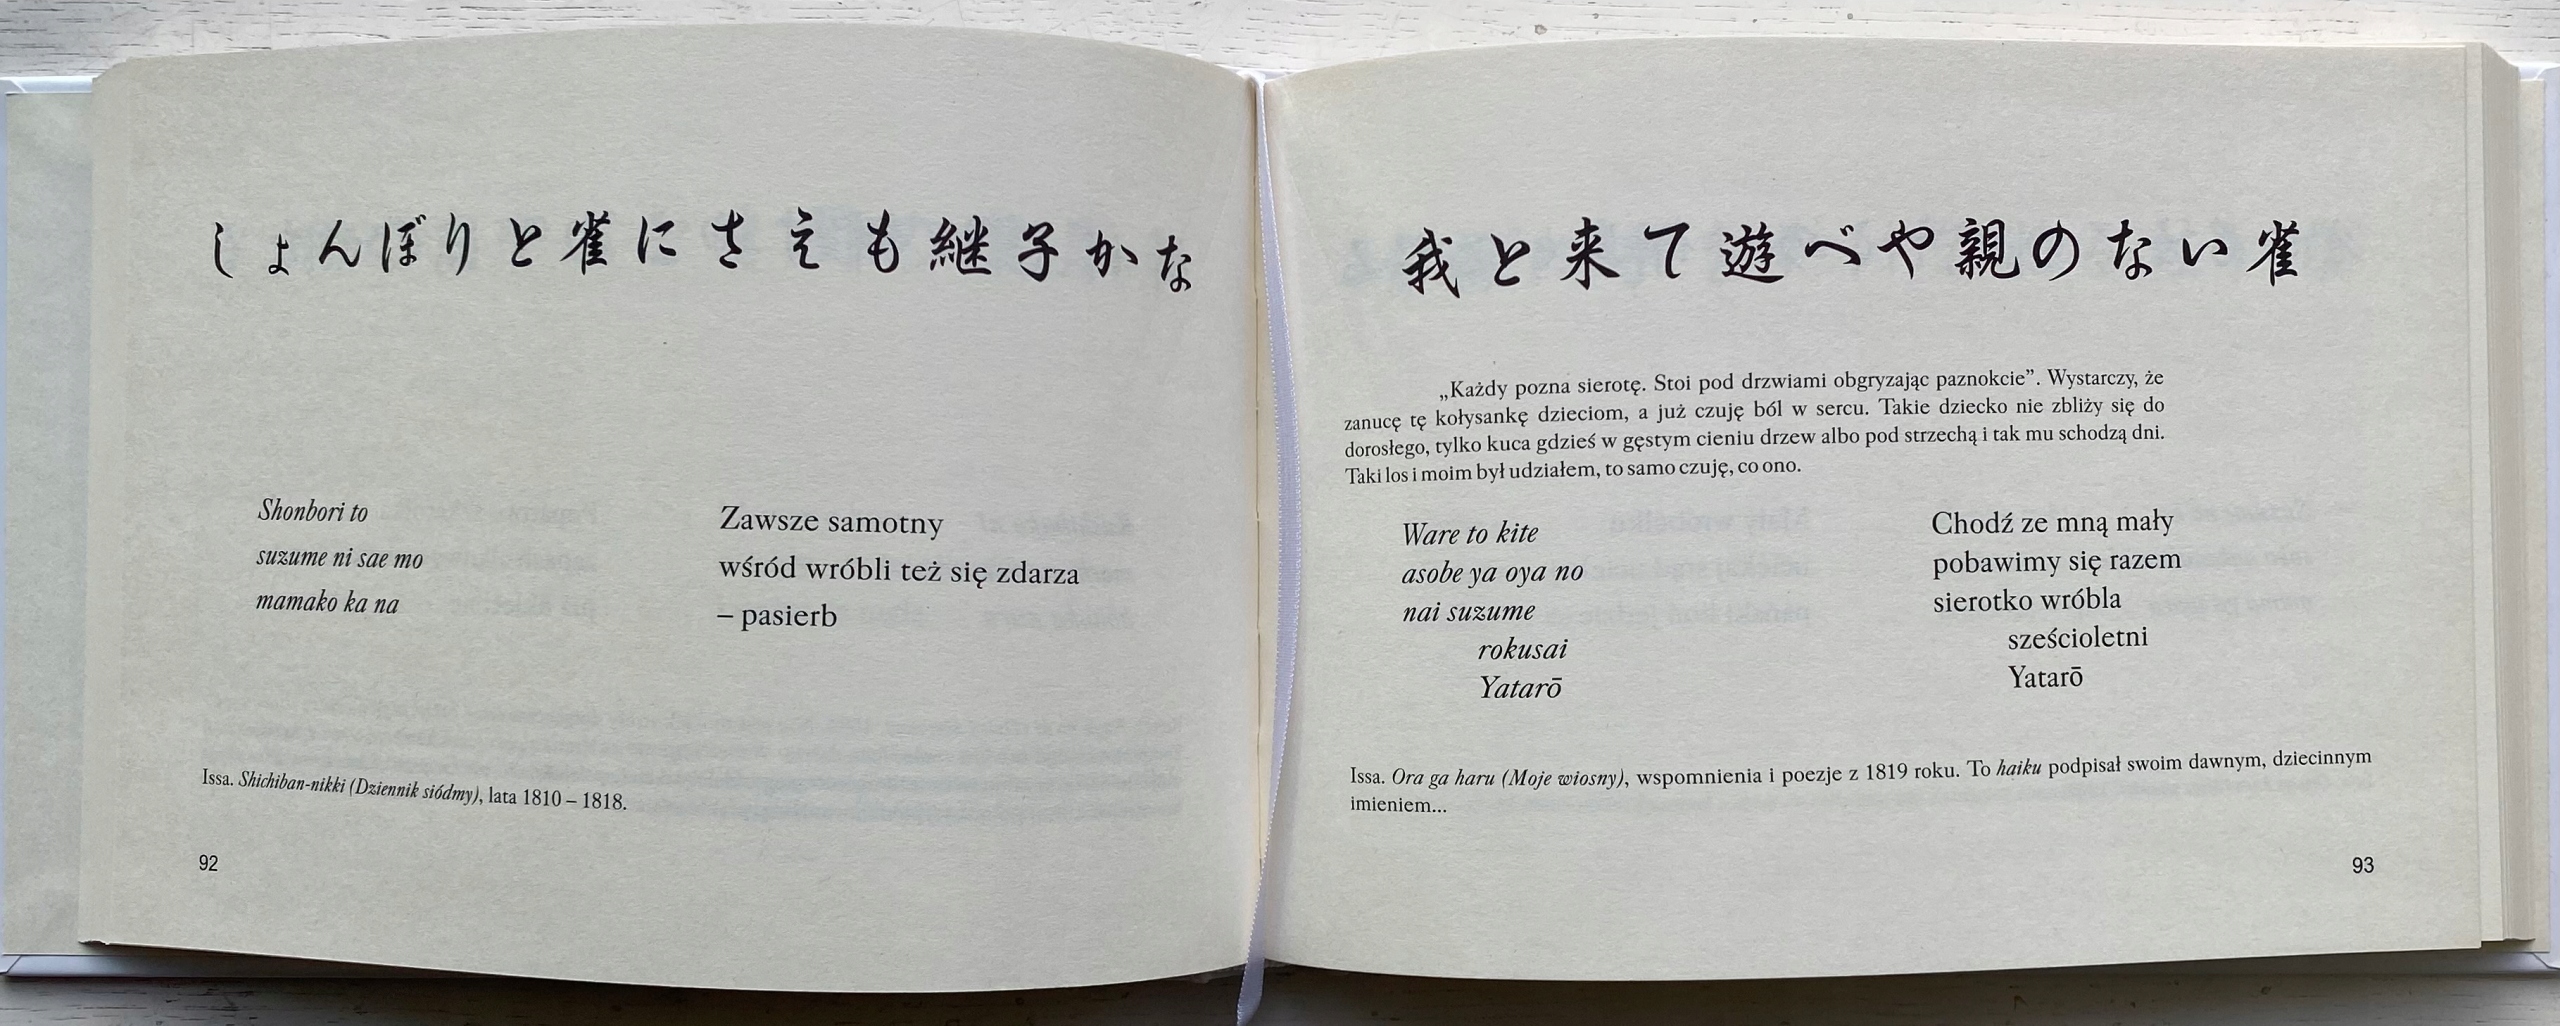 しょんぼりと雀にさえも継子かな
Shonbori to
suzume ni sae mo
mamako ka na
Zawsze samotny
wśród wróbli też się zdarza
– pasierb
Issa. Shichiban-nikki (Dziennik siódmy), lata 1810 – 1818.
92
我と来て遊べや親のない雀
„Każdy pozna sierotę. Stoi pod drzwiami obgryzając paznokcie”. Wystarczy, że
zanucę tę kołysankę dzieciom, a już czuję ból w sercu. Takie dziecko nie zbliży się do
dorosłego, tylko kuca gdzieś w gęstym cieniu drzew albo pod strzechą i tak mu schodzą dni.
Taki los i moim był udziałem, to samo czuję, co ono.
Ware to kite
asobe ya oya no
nai suzume
rokusai
Yatarō
Chodź ze mną mały
pobawimy się razem
sierotko wróbla
sześcioletni
Yatarō
Issa. Ora ga haru (Moje wiosny), wspomnienia i poezje z 1819 roku. To haiku podpisał swoim dawnym, dziecinnym
imieniem...
93